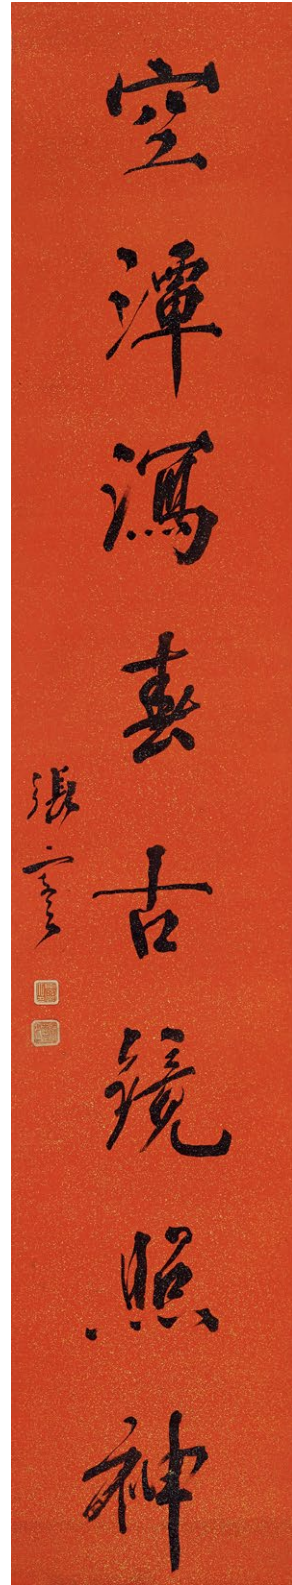 空潭瀉春古鏡照神
張謇